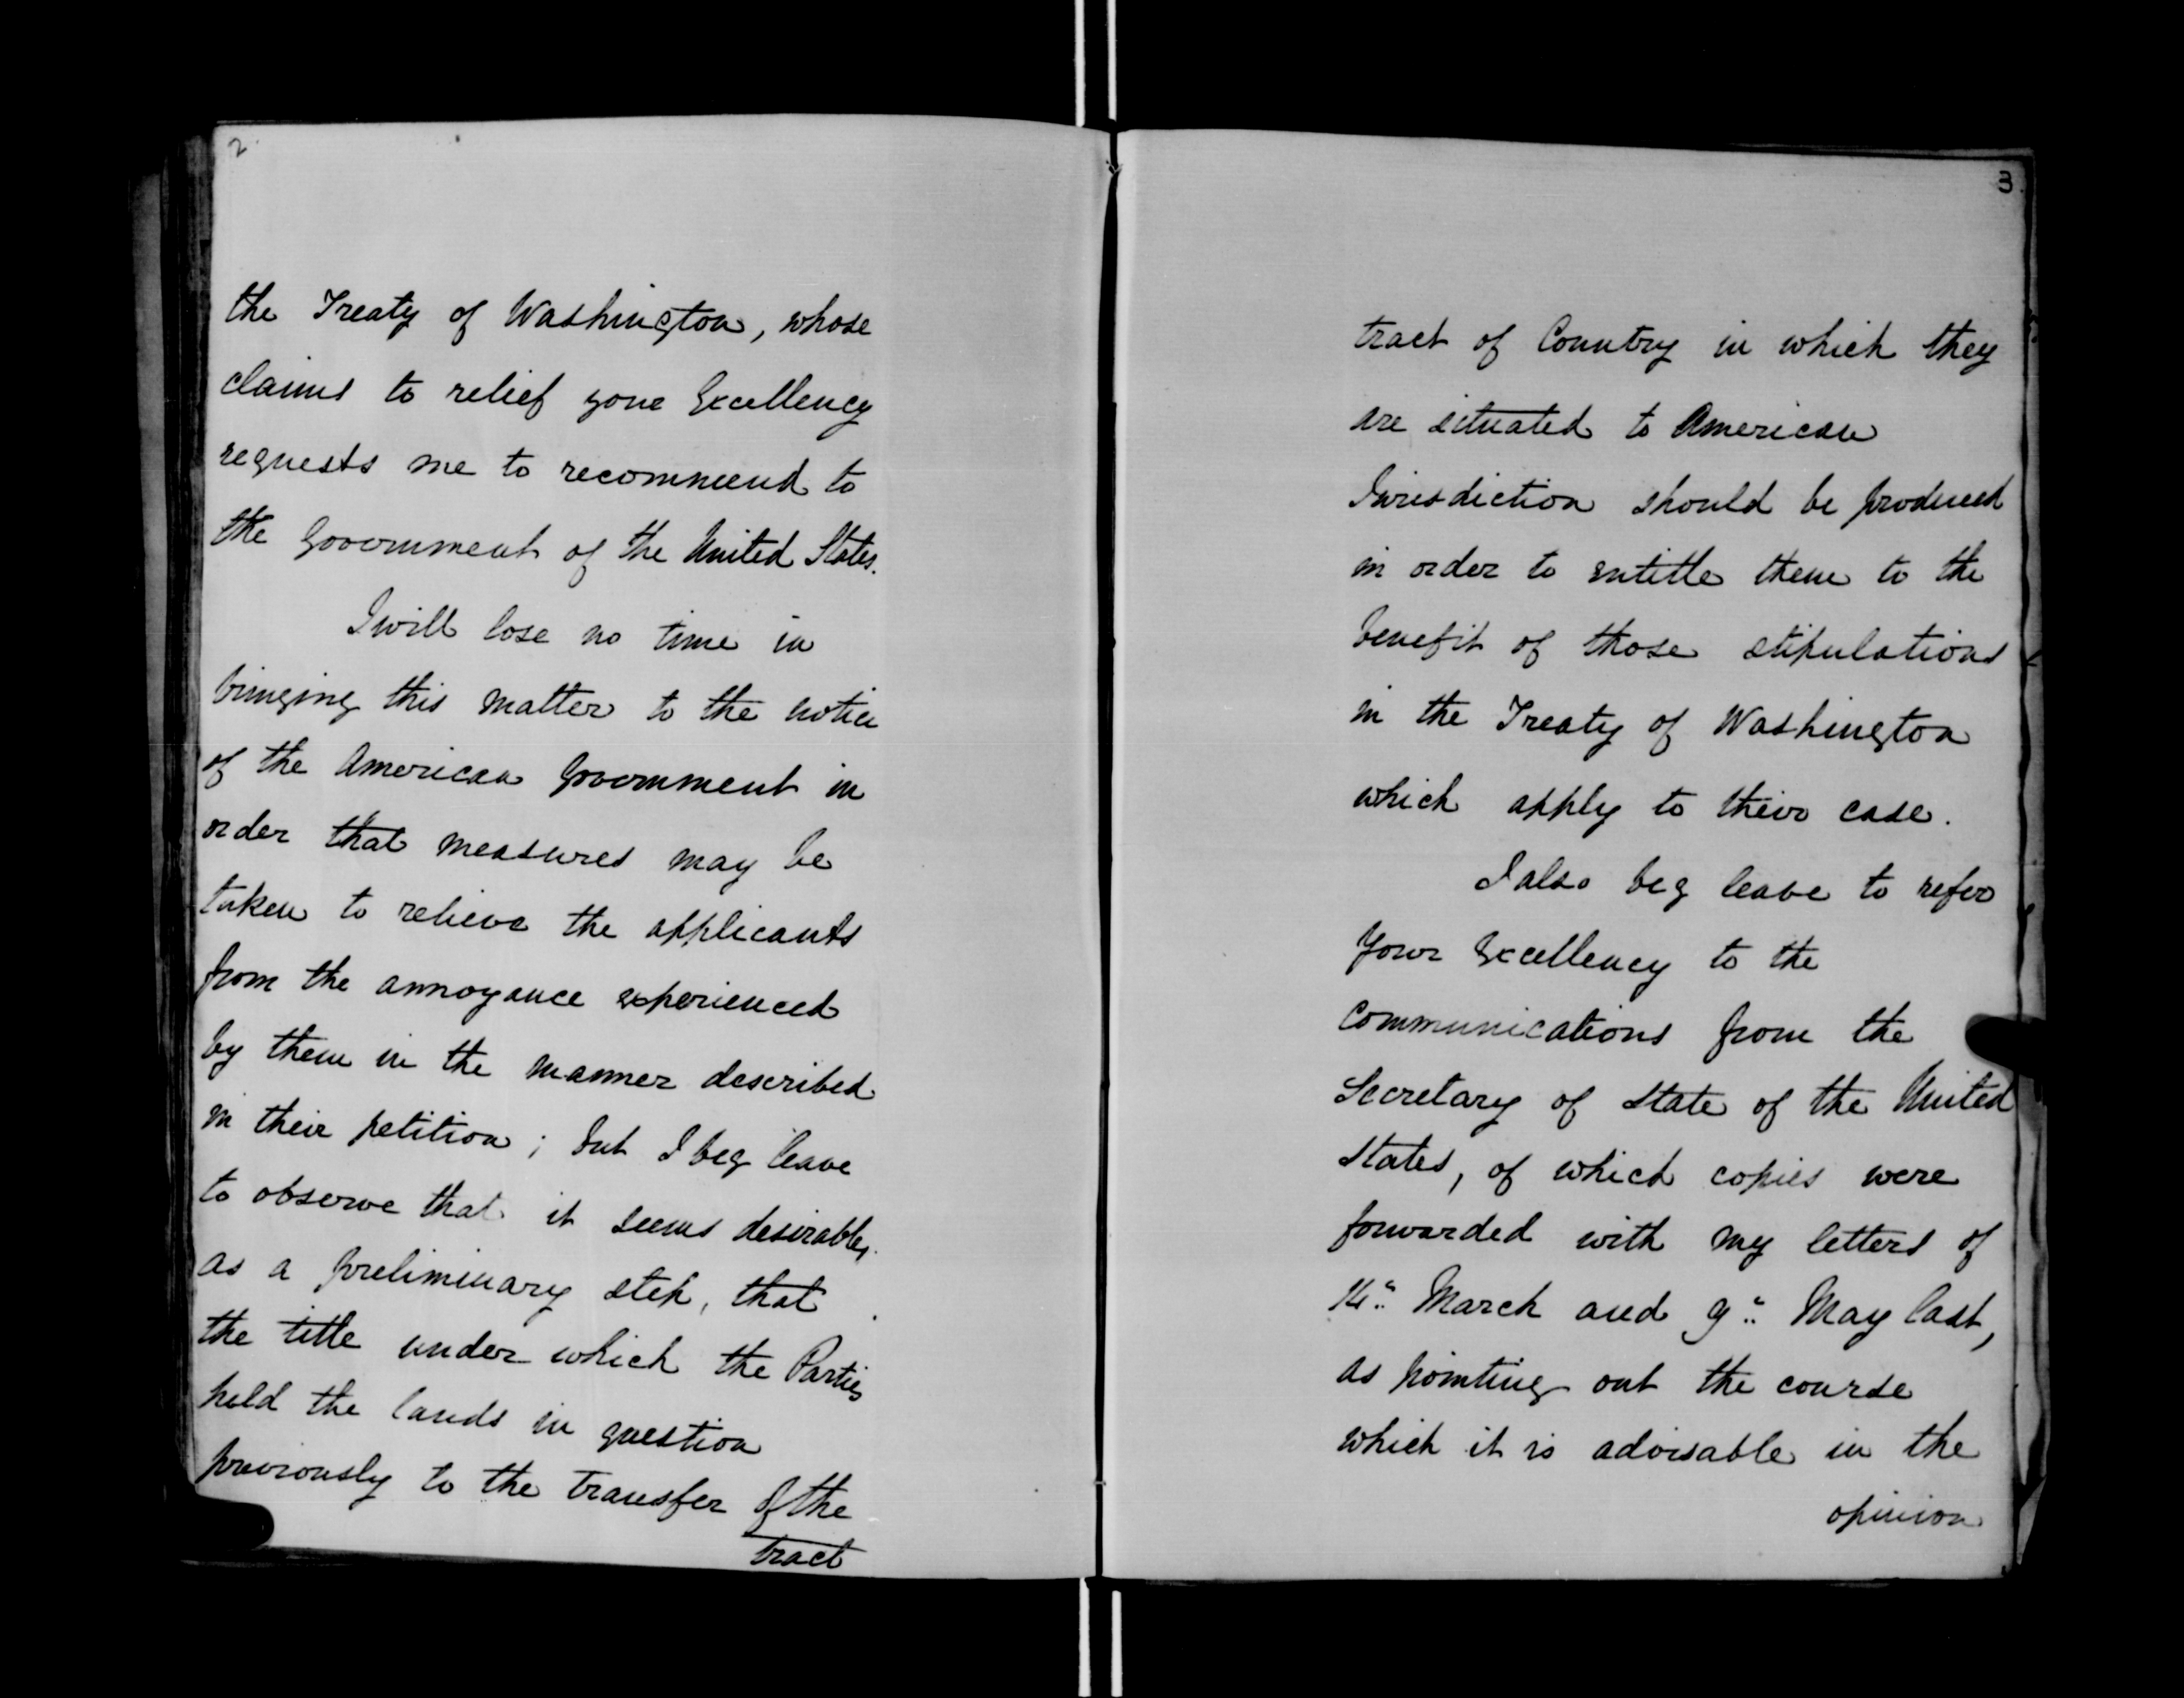 2.
the Treaty of Washington, whose
claims to relief your Excellency
requests me to recommend to
the Government of the United States.
I will lose no time in
bringing this matter to the notice
of the American Government in
order that measures may be
taken to relieve the applicants
from the annoyance experienced
by them in the manner described
in their petition; but I beg leave
to observe that it seems desirable,
as a preliminary step, that
the title under which the Parties
held the lands in question
previously to the transfer of the
tract
3.
tract of Country in which they
are situated to American
Jurisdiction should be produced
in order to entitle them to the
benefit of those stipulations
in the Treaty of Washington
which apply to their case.
I also beg leave to refer
Your Excellency to the
communications from the
Secretary of State of the United
States, of which copies were
forwarded with my letters of
14" March and 9" May last,
as pointing out the course
which it is advisable in the
opinion